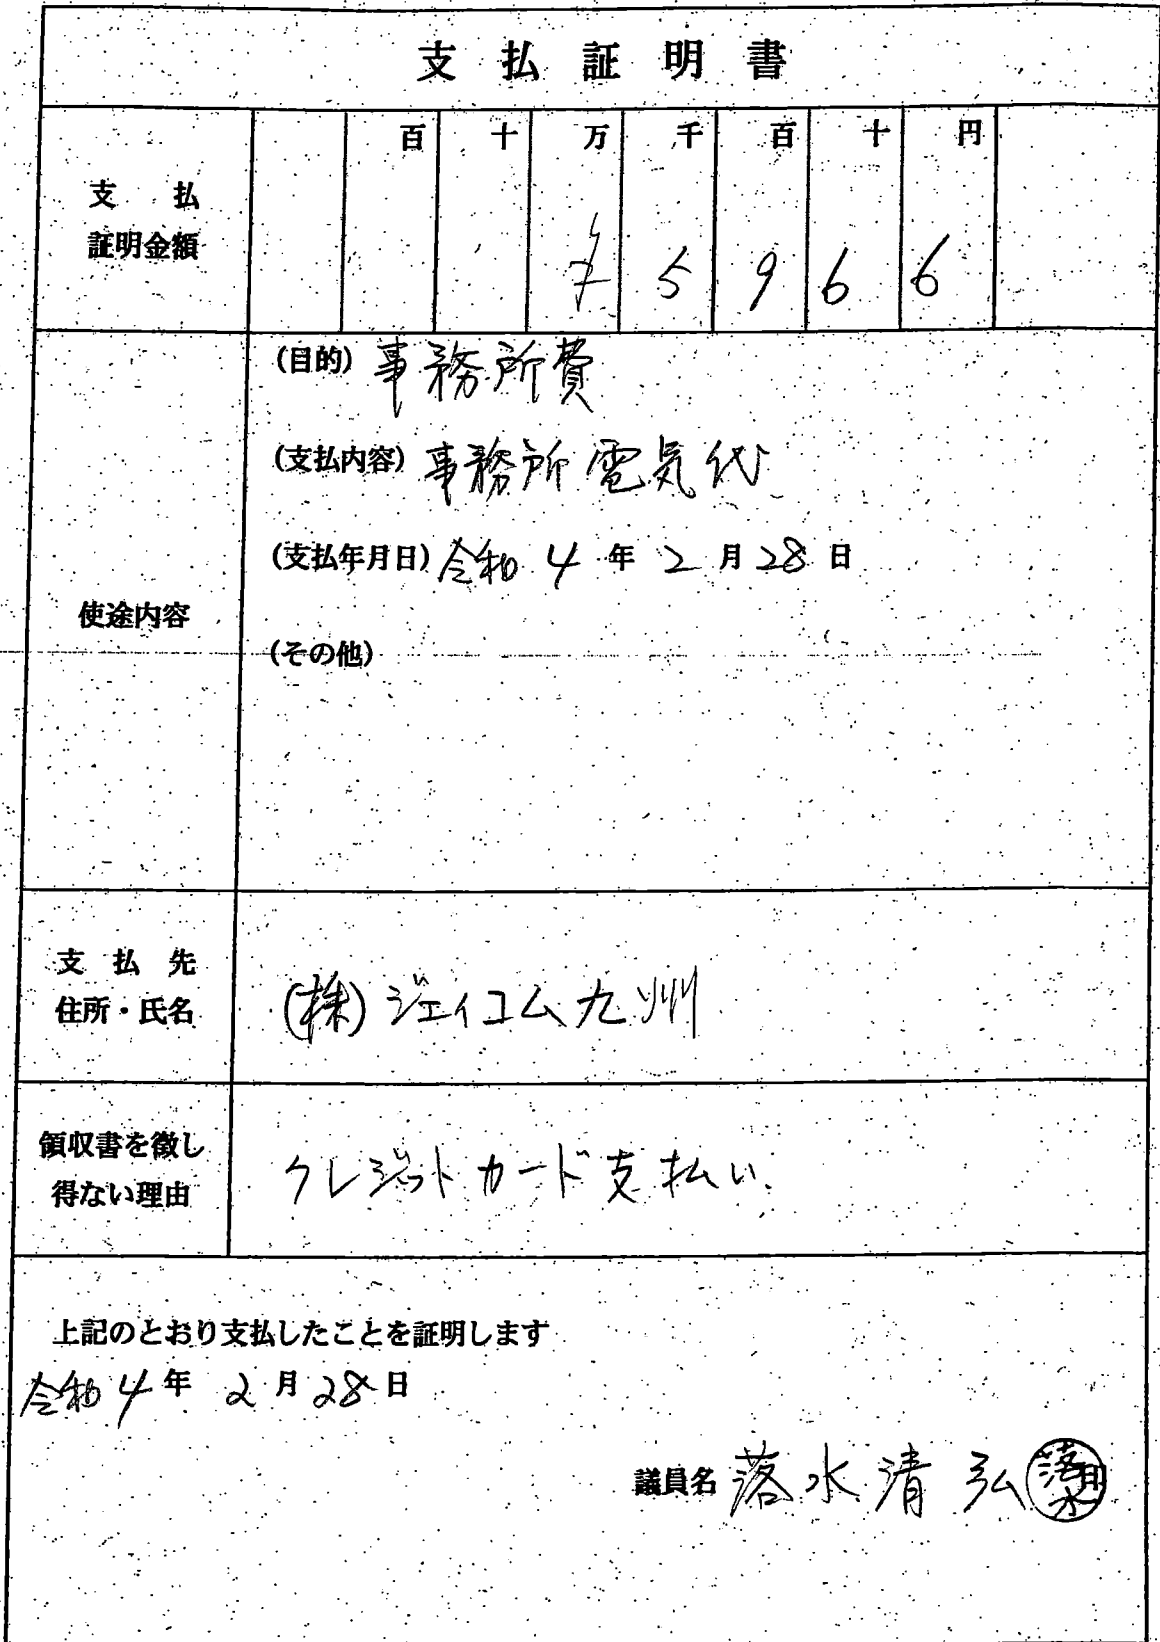 支払証明書
百 十 万 千 百 十 円
支払
証明金額
5 9 6 6
(目的) 事務所費
(支払内容) 事務所電気代
(支払年月日) 令和 4 年 2 月 28 日
使途内容
(その他)
支払先
住所・氏名
(株)ジェイコム九州
領収書を徴し
得ない理由
クレジットカード支払い.
上記のとおり支払したことを証明します
令和 4 年 2 月 28 日
議員名 落水清弘